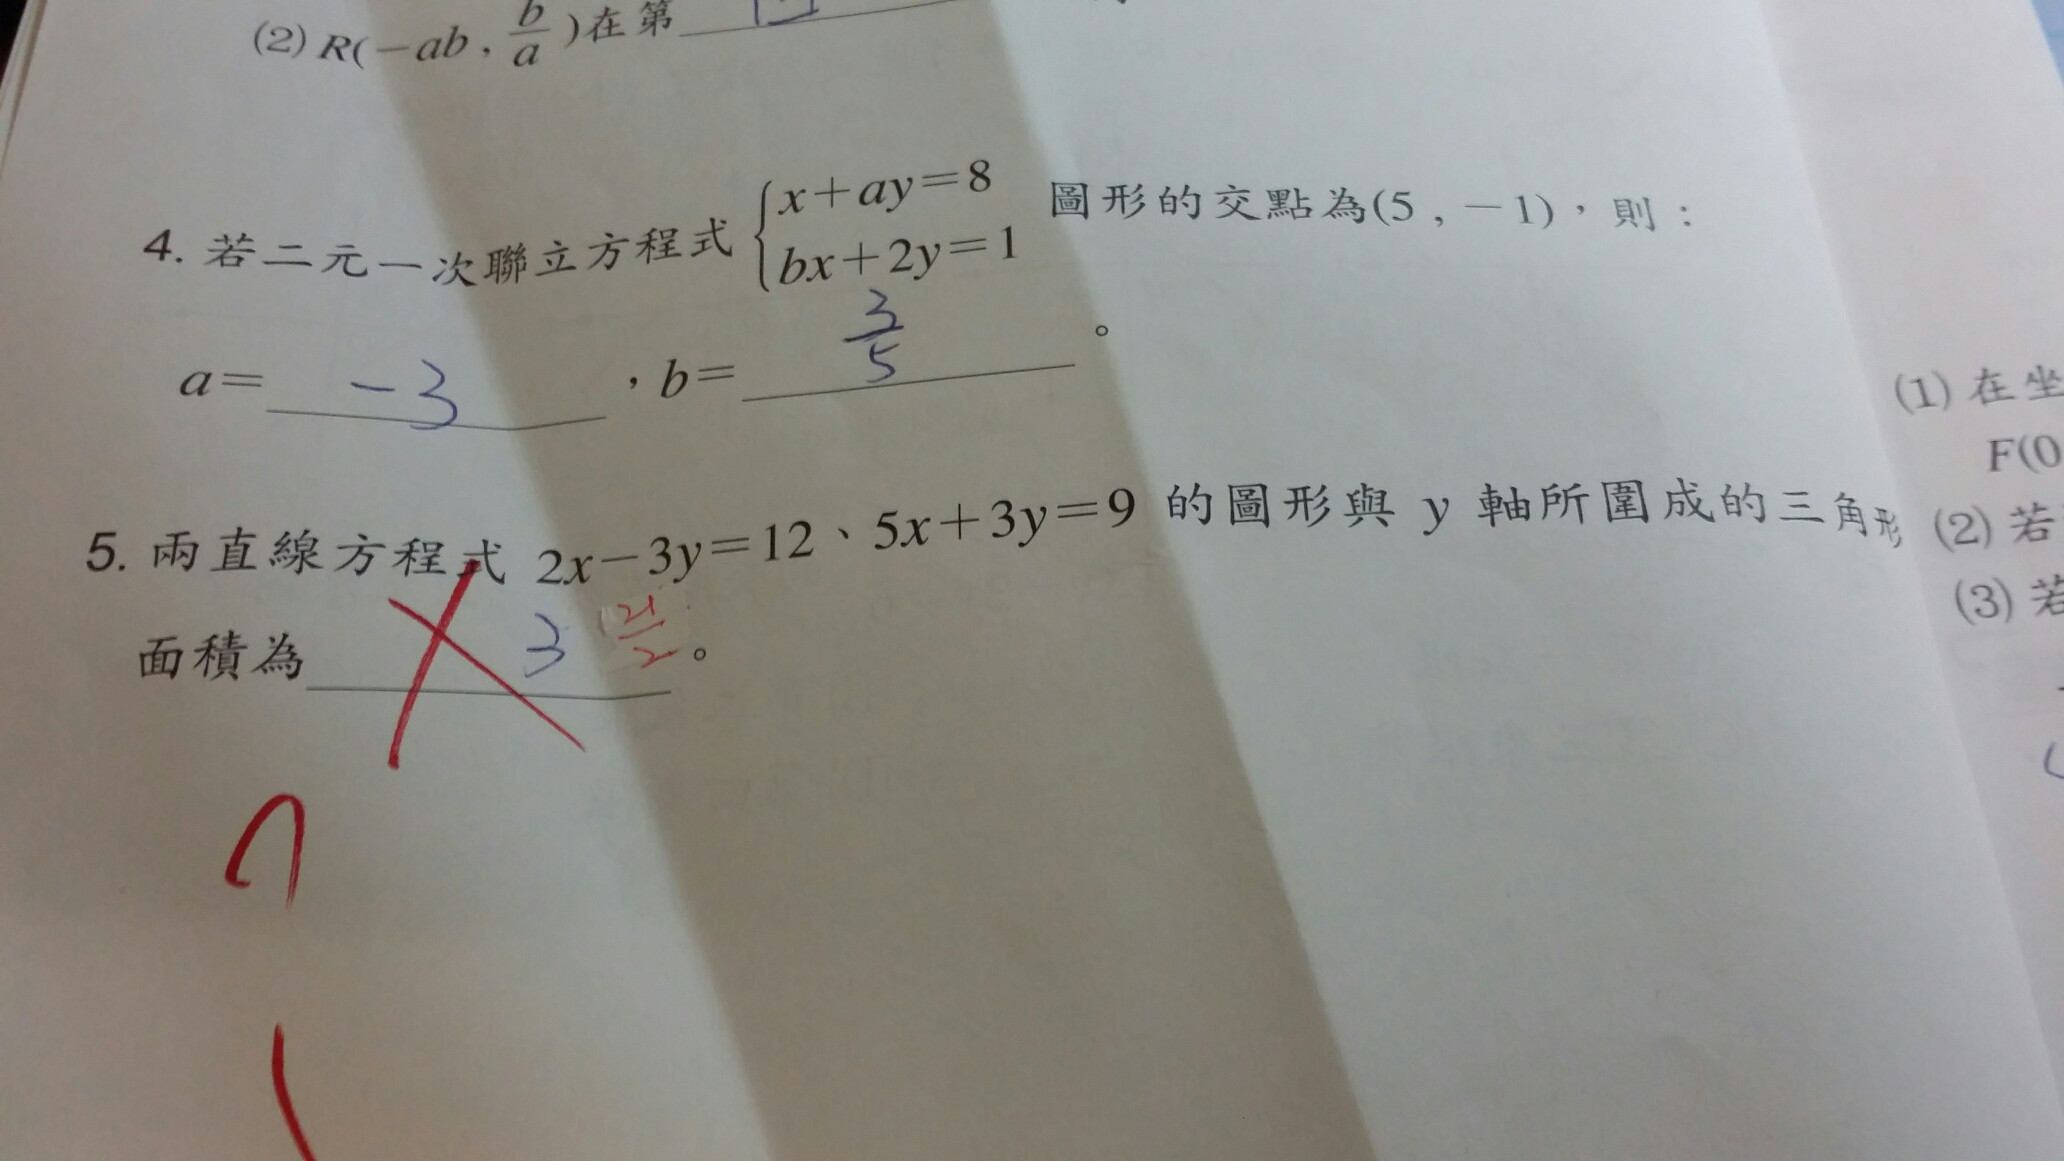 (2) R(-ab, b/a)在第
4. 若二元一次聯立方程式 { x+ay=8 圖形的交點為(5,-1),則:
bx+2y=1
a= -3 ,b= 3/5 。
5. 兩直線方程式 2x-3y=12、5x+3y=9 的圖形與 y 軸所圍成的三角形
面積為 3 21/2 。
(1) 在坐
F(0
(2) 若
(3) 若